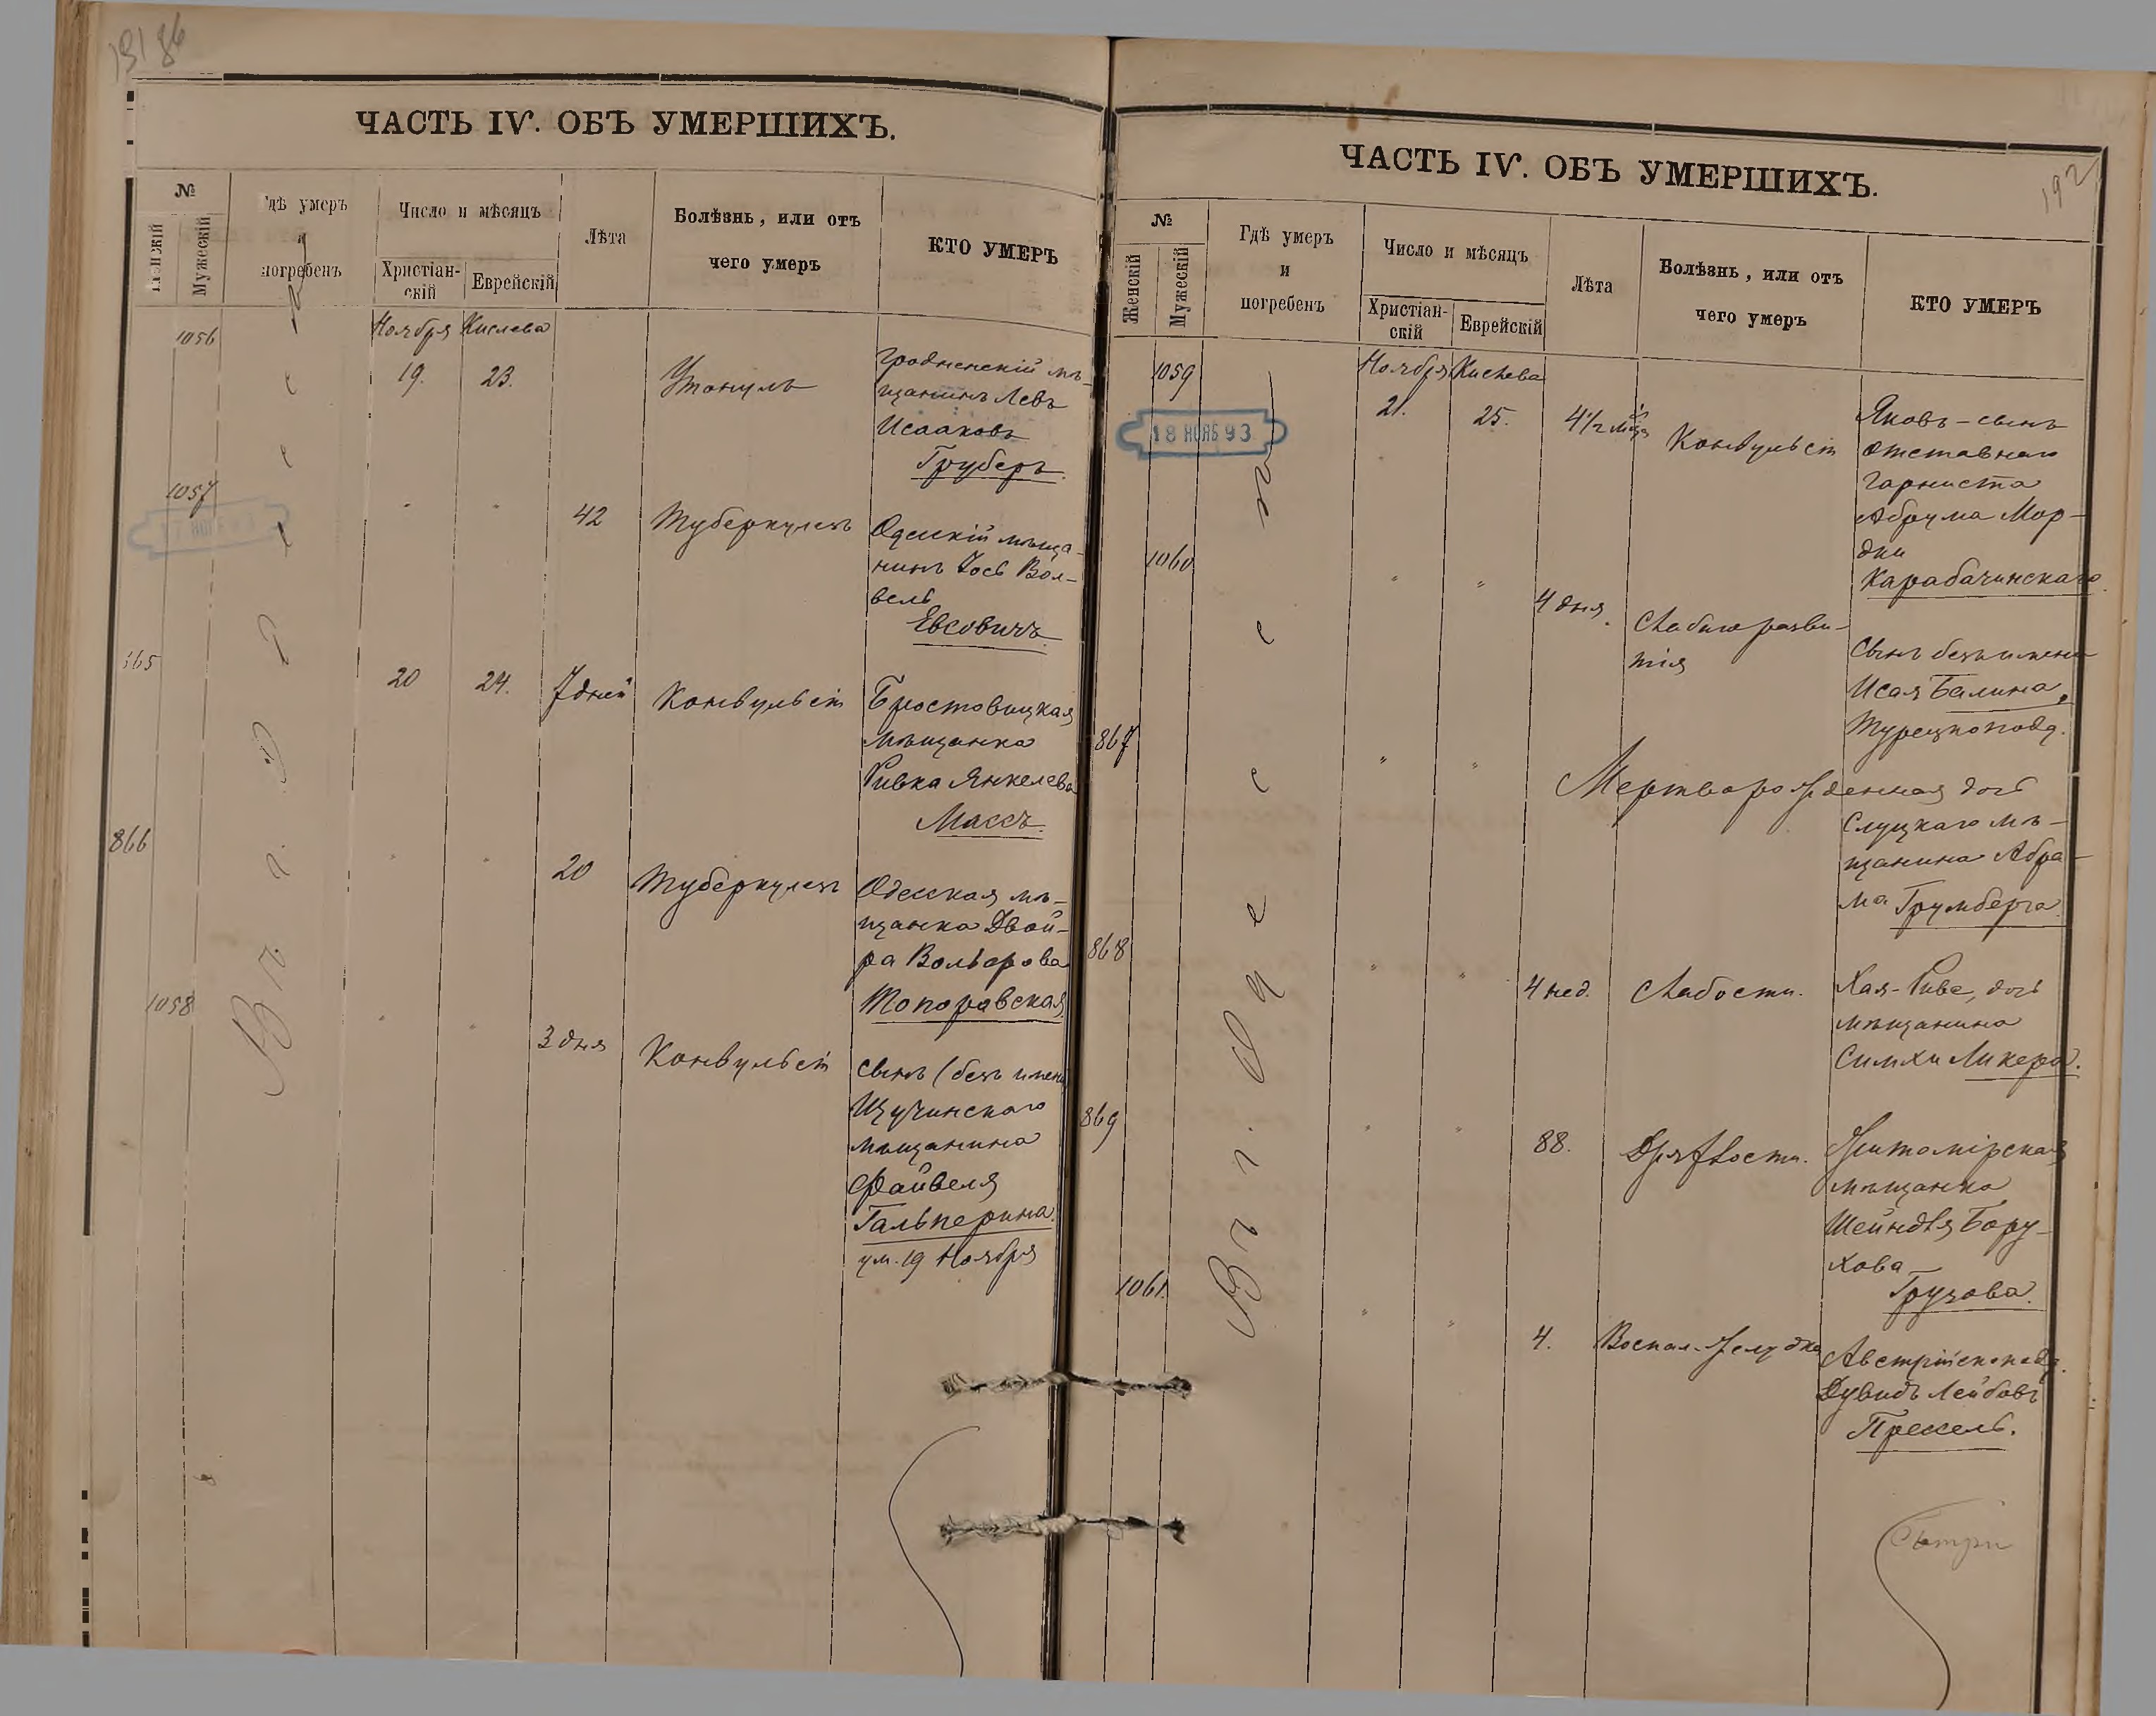 ЧАСТЬ IV. ОБЪ УМЕРШИХЪ.
№
Мужескій
Гдѣ умеръ
и
погребенъ
Число и мѣсяцъ
Христіан-
скій
Еврейскій
Лѣта
Болѣзнь, или отъ
чего умеръ
КТО УМЕРЪ
Ноября Кислева
1056
19. 23.
Утонулъ
Гродненскій мѣ-
щанинъ Левъ
Исааковъ
Груберъ.
1057
" "
42
Туберкулезъ
Одесскій мѣща-
нинъ Іось Вол-
вель
Евсовичъ
865
20 24. 7 дней
Конвульсіи
Бростовицкая
мѣщанка
Ривка Янкелева
Массъ.
866
" "
20
Туберкулезъ
Одесская мѣ-
щанка Двой-
ра Вольфова
Топоровская.
1058
" "
3 дня
Конвульсіи
Сынъ (безъ имени
Щучинскаго
мѣщанина
Файвеля
Гальперина.
ум. 19 Ноября
Въ г. Одессѣ
ЧАСТЬ IV. ОБЪ УМЕРШИХЪ.
192
№
Женскій
Мужескій
Гдѣ умеръ
и
погребенъ
Число и мѣсяцъ
Христіан-
скій
Еврейскій
Лѣта
Болѣзнь, или отъ
чего умеръ
КТО УМЕРЪ
Ноября Кислева
1059
18 НОЯБ 93
21. 25. 4½ мѣс
Конвульсіи
Яковъ – сынъ
отставнаго
горниста
Абрума Мор-
дки
Карабачинскаго.
1060
" "
4 дня.
Слабаго разви-
тія
Сынъ безъ имени
Исая Балина,
Турецкоподд.
867
" "
Мертворожденная дочь
Слуцкаго мѣ-
щанина Абра-
ма Грумберга.
868
" "
4 нед.
Слабости.
Хая-Риве, дочь
мѣщанина
Симхи Ликера.
869
" "
88.
Дряхлости.
Житомірская
мѣщанка
Шейндля Бору-
хова
Грузова.
1061.
" "
4.
Воспал. желудка
Австрійскоподд.
Дувидъ Лейбовъ
Прессель.
Въ г. Одессѣ